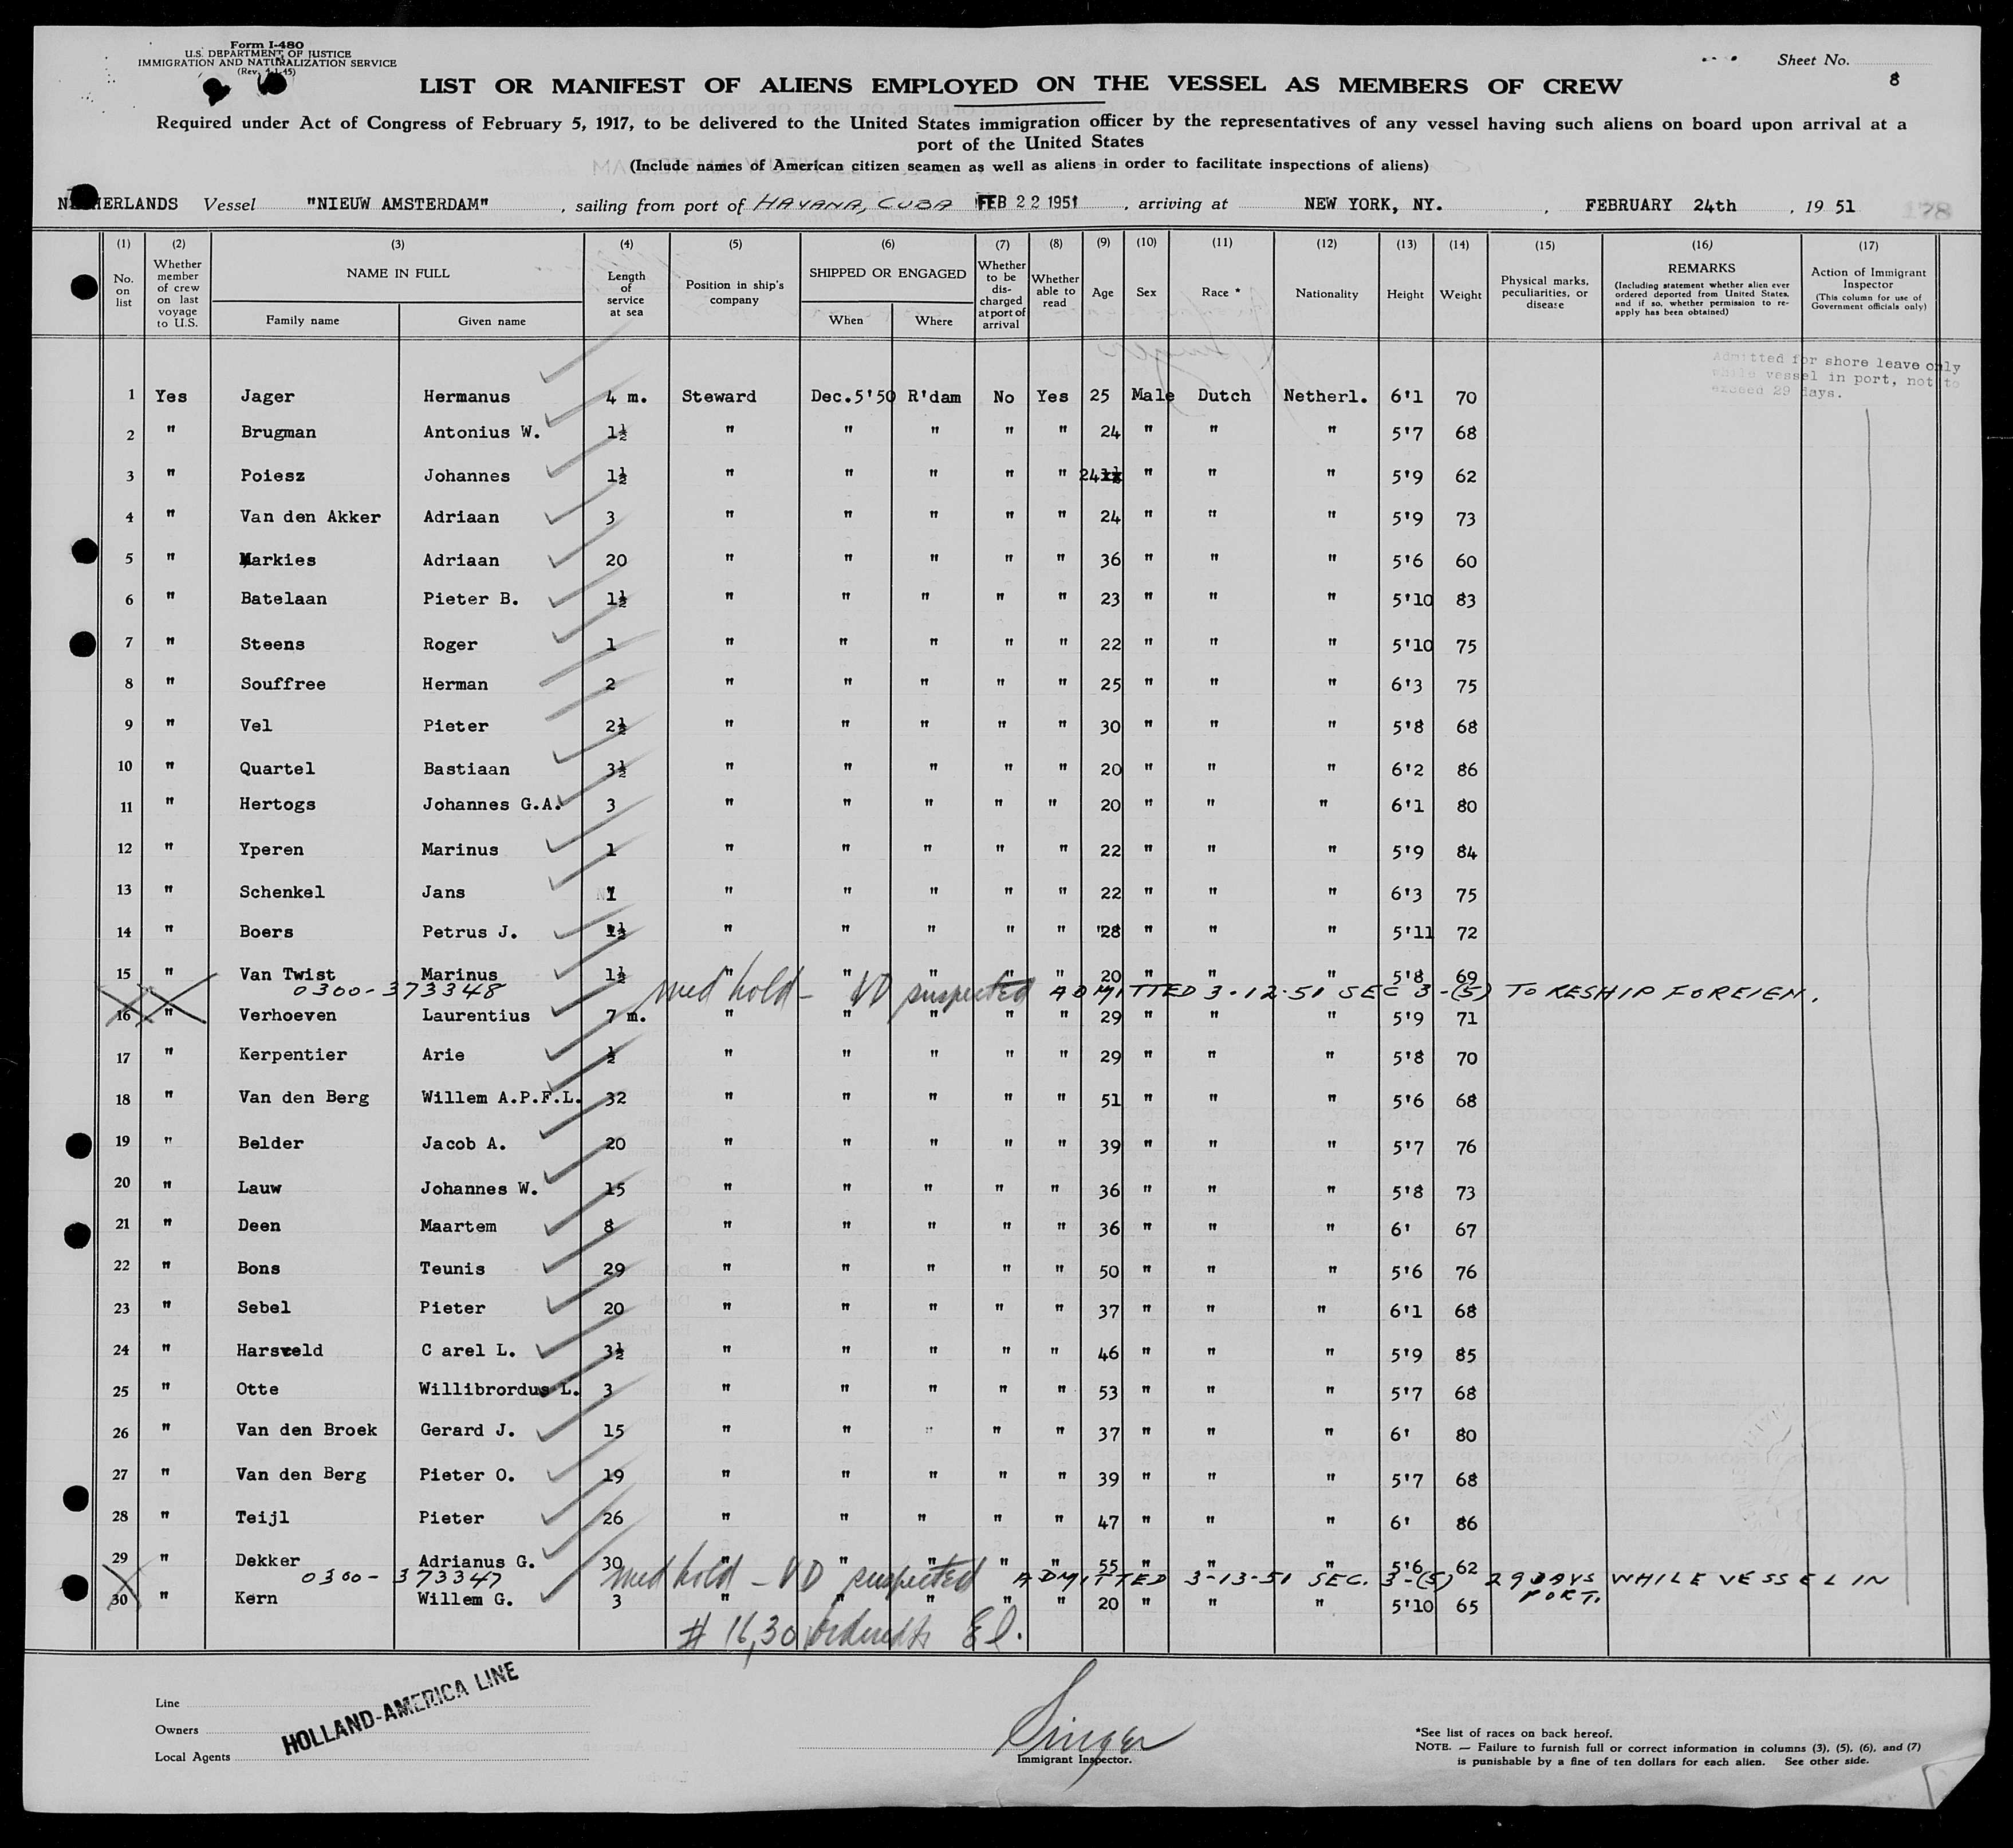 Form I-480
U.S. DEPARTMENT OF JUSTICE
IMMIGRATION AND NATURALIZATION SERVICE
(Rev. 4-1-45)
Sheet No. 8
LIST OR MANIFEST OF ALIENS EMPLOYED ON THE VESSEL AS MEMBERS OF CREW
Required under Act of Congress of February 5, 1917, to be delivered to the United States immigration officer by the representatives of any vessel having such aliens on board upon arrival at a
port of the United States
(Include names of American citizen seamen as well as aliens in order to facilitate inspections of aliens)
NETHERLANDS Vessel "NIEUW AMSTERDAM", sailing from port of HAVANA, CUBA FEB 22 1951, arriving at NEW YORK, NY., FEBRUARY 24th, 19 51 178
(1) (2) (3) (4) (5) (6) (7) (8) (9) (10) (11) (12) (13) (14) (15) (16) (17)
No. on list Whether member of crew on last voyage to U.S. NAME IN FULL Family name Given name Length of service at sea Position in ship's company SHIPPED OR ENGAGED When Where Whether to be discharged at port of arrival Whether able to read Age Sex Race * Nationality Height Weight Physical marks, peculiarities, or disease REMARKS (Including statement whether alien ever ordered deported from United States, and if so, whether permission to re-apply has been obtained) Action of Immigrant Inspector (This column for use of Government officials only)
Admitted for shore leave only
while vessel in port, not to
exceed 29 days.
1 Yes Jager Hermanus 4 m. Steward Dec.5'50 R'dam No Yes 25 Male Dutch Netherl. 6'1 70
2 " Brugman Antonius W. 1½ " " " " " 24 " " " 5'7 68
3 " Poiesz Johannes 1½ " " " " " 24 " " " 5'9 62
4 " Van den Akker Adriaan 3 " " " " " 24 " " " 5'9 73
5 " Markies Adriaan 20 " " " " " 36 " " " 5'6 60
6 " Batelaan Pieter B. 1½ " " " " " 23 " " " 5'10 83
7 " Steens Roger 1 " " " " " 22 " " " 5'10 75
8 " Souffree Herman 2 " " " " " 25 " " " 6'3 75
9 " Vel Pieter 2½ " " " " " 30 " " " 5'8 68
10 " Quartel Bastiaan 3½ " " " " " 20 " " " 6'2 86
11 " Hertogs Johannes G.A. 3 " " " " " 20 " " " 6'1 80
12 " Yperen Marinus 1 " " " " " 22 " " " 5'9 84
13 " Schenkel Jans 1 " " " " " 22 " " " 6'3 75
14 " Boers Petrus J. 1½ " " " " " 28 " " " 5'11 72
15 " Van Twist Marinus 1½ " " " " " 20 " " " 5'8 69
0300-373348 med hold - VD suspected ADMITTED 3-12-51 SEC 3-(5) TO RESHIP FOREIGN.
16 " Verhoeven Laurentius 7 m. " " " " " 29 " " " 5'9 71
17 " Kerpentier Arie ½ " " " " " 29 " " " 5'8 70
18 " Van den Berg Willem A.P.F.L. 32 " " " " " 51 " " " 5'6 68
19 " Belder Jacob A. 20 " " " " " 39 " " " 5'7 76
20 " Lauw Johannes W. 15 " " " " " 36 " " " 5'8 73
21 " Deen Maartem 8 " " " " " 36 " " " 6' 67
22 " Bons Teunis 29 " " " " " 50 " " " 5'6 76
23 " Sebel Pieter 20 " " " " " 37 " " " 6'1 68
24 " Harsveld C arel L. 3½ " " " " " 46 " " " 5'9 85
25 " Otte Willibrordus L. 3 " " " " " 53 " " " 5'7 68
26 " Van den Broek Gerard J. 15 " " " " " 37 " " " 6' 80
27 " Van den Berg Pieter O. 19 " " " " " 39 " " " 5'7 68
28 " Teijl Pieter 26 " " " " " 47 " " " 6' 86
29 " Dekker Adrianus G. 30 " " " " " 55 " " " 5'6 62
0300-373347 med hold - VD suspected ADMITTED 3-13-51 SEC. 3-(5) 29 DAYS WHILE VESSEL IN
PORT.
30 " Kern Willem G. 3 " " " " " 20 " " " 5'10 65
# 16,30 ordered to E I.
Line
Owners
Local Agents
HOLLAND-AMERICA LINE
Singer
Immigrant Inspector.
*See list of races on back hereof.
NOTE. — Failure to furnish full or correct information in columns (3), (5), (6), and (7)
is punishable by a fine of ten dollars for each alien. See other side.